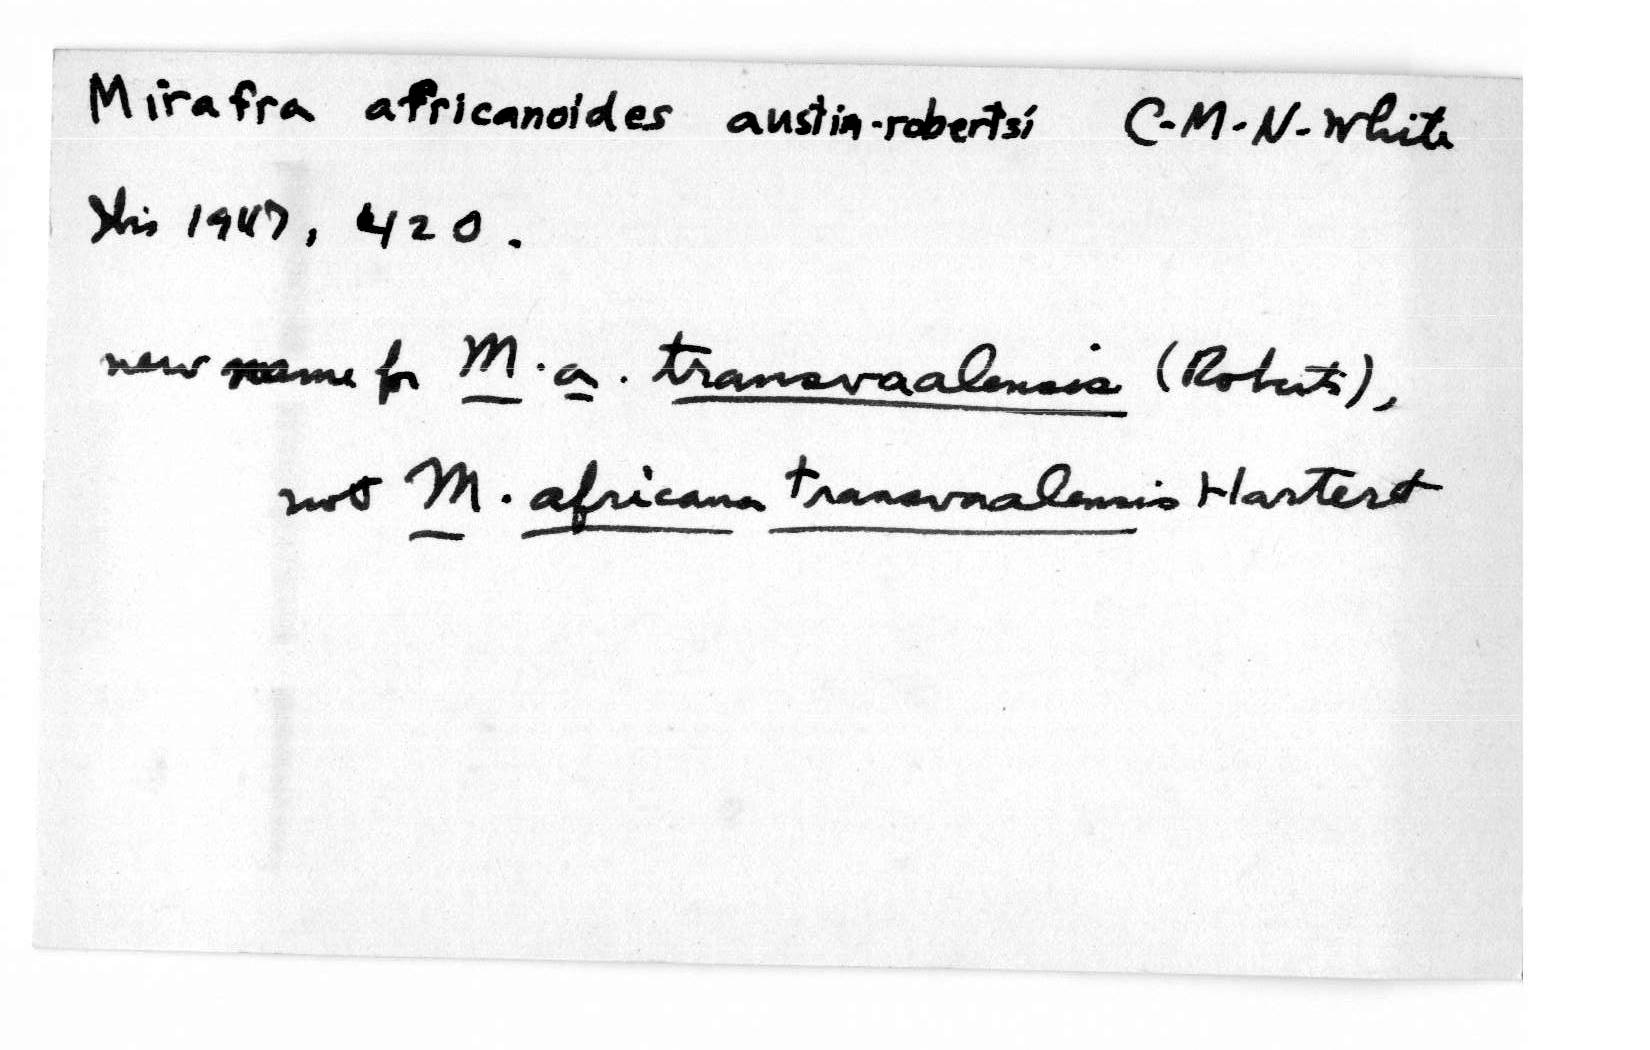 Mirafra africanoides austin-robertsi C.M.N. White
Ibis 1947, 420.
new name for M. a. transvaalensis (Roberts),
not M. africana transvaalensis Hartert